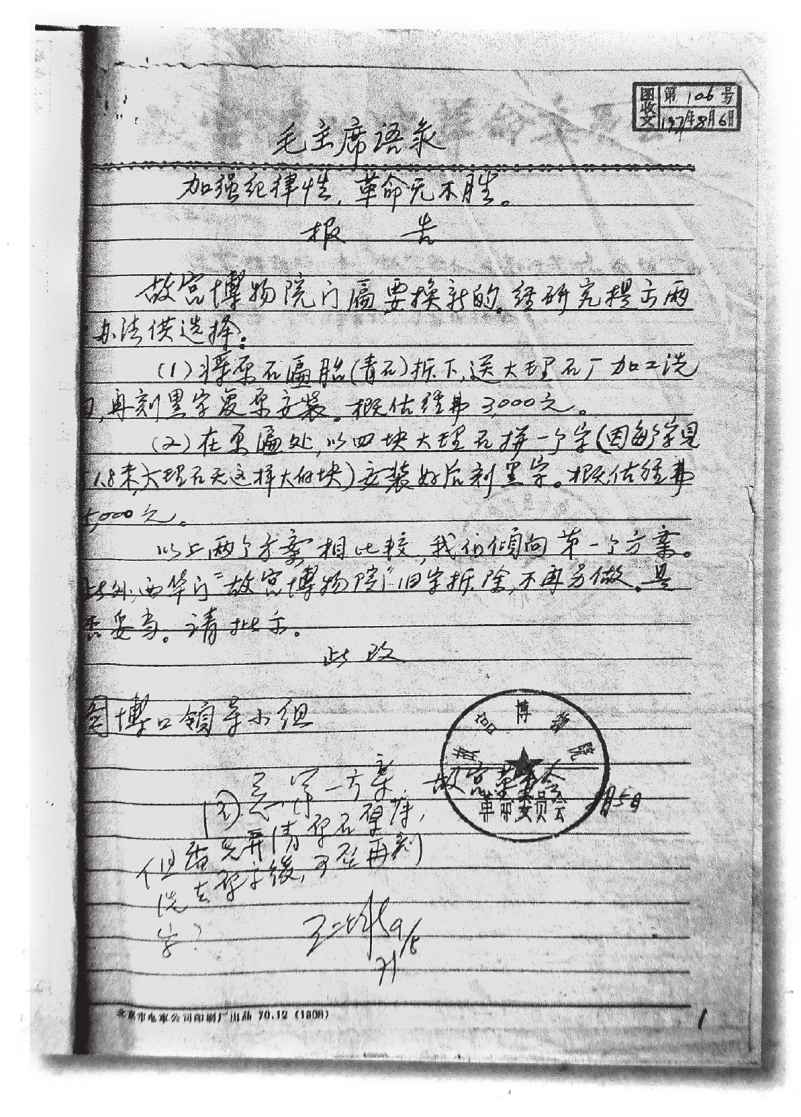 图收文
第 106 号
1971年8月6日
毛主席语录
加强纪律性，革命无不胜。
报 告
故宫博物院门匾要换新的，经研究提出两
办法供选择：
(1)将原石匾胎(青石)拆下，送大理石厂加工洗
，再刻黑字复原安装。概估经费3,000元。
(2)在原匾处，以四块大理石拼一个字(因每个字见
1.8米，大理石无这样大的块)安装好后刻黑字。概估经费
5,000元。
以上两个方案相比较，我们倾向第一个方案。
此外，西华门“故宫博物院”旧字拆除，不再另做。是
否妥当。请批示。
此致
图博口领导小组
故宫博物院
革命委员会
故宫革委会
8月5日
同意第一方案，
但需先弄清原石硬度，
洗去原字后，可否再刻
字？
9/8
71
北京市电车公司印刷厂出品 70.12 (1809)
1